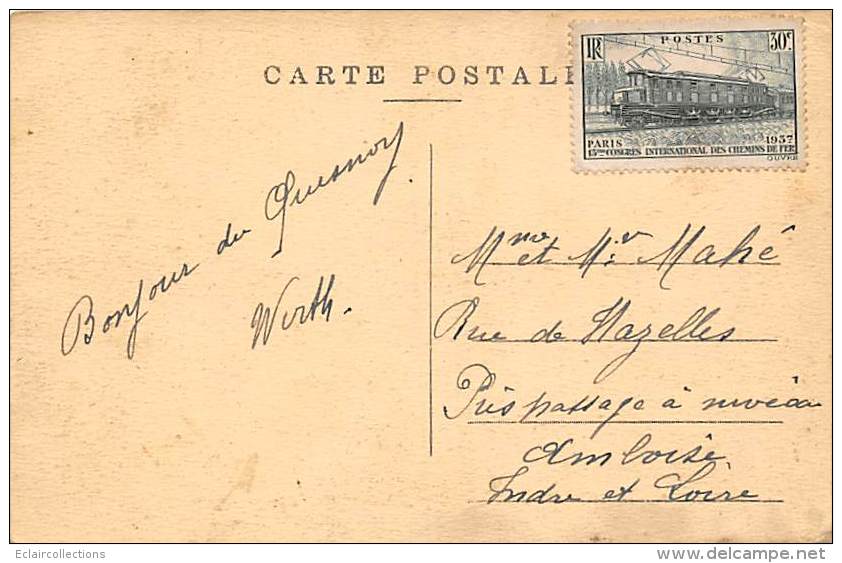 CARTE POSTALE
RF POSTES 30c
PARIS 1937
13me CONGRES INTERNATIONAL DES CHEMINS DE FER
OUVRE
Bonjour du Quesnoy
Wirth.
Mme et Mr Mahé
Rue de Nazelles
Près passage à niveau
Amboise
Indre et Loire
Eclaircollections
http://www.delcampe.net